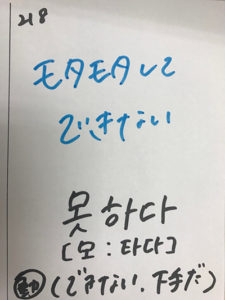 218
モタモタして
できない
못하다
[모:타다]
動 (できない.下手だ)